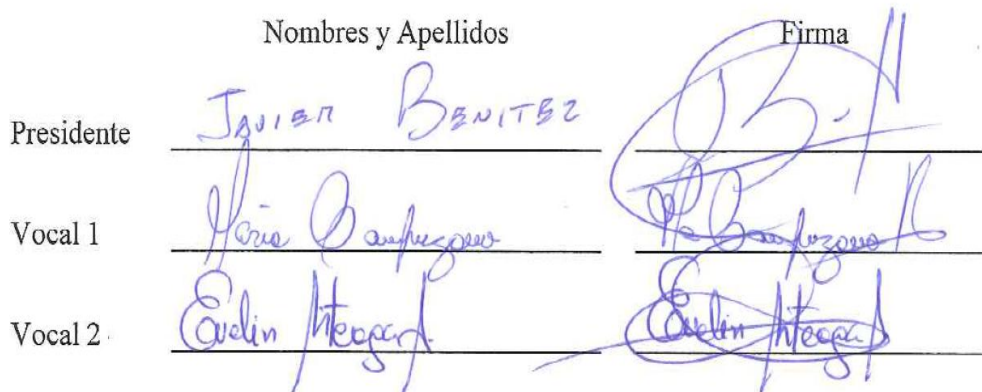 Nombres y Apellidos Firma
Presidente JAVIER BENITEZ
Vocal 1 Maria Campuzano Ma Campuzano
Vocal 2 Evelin Evelin